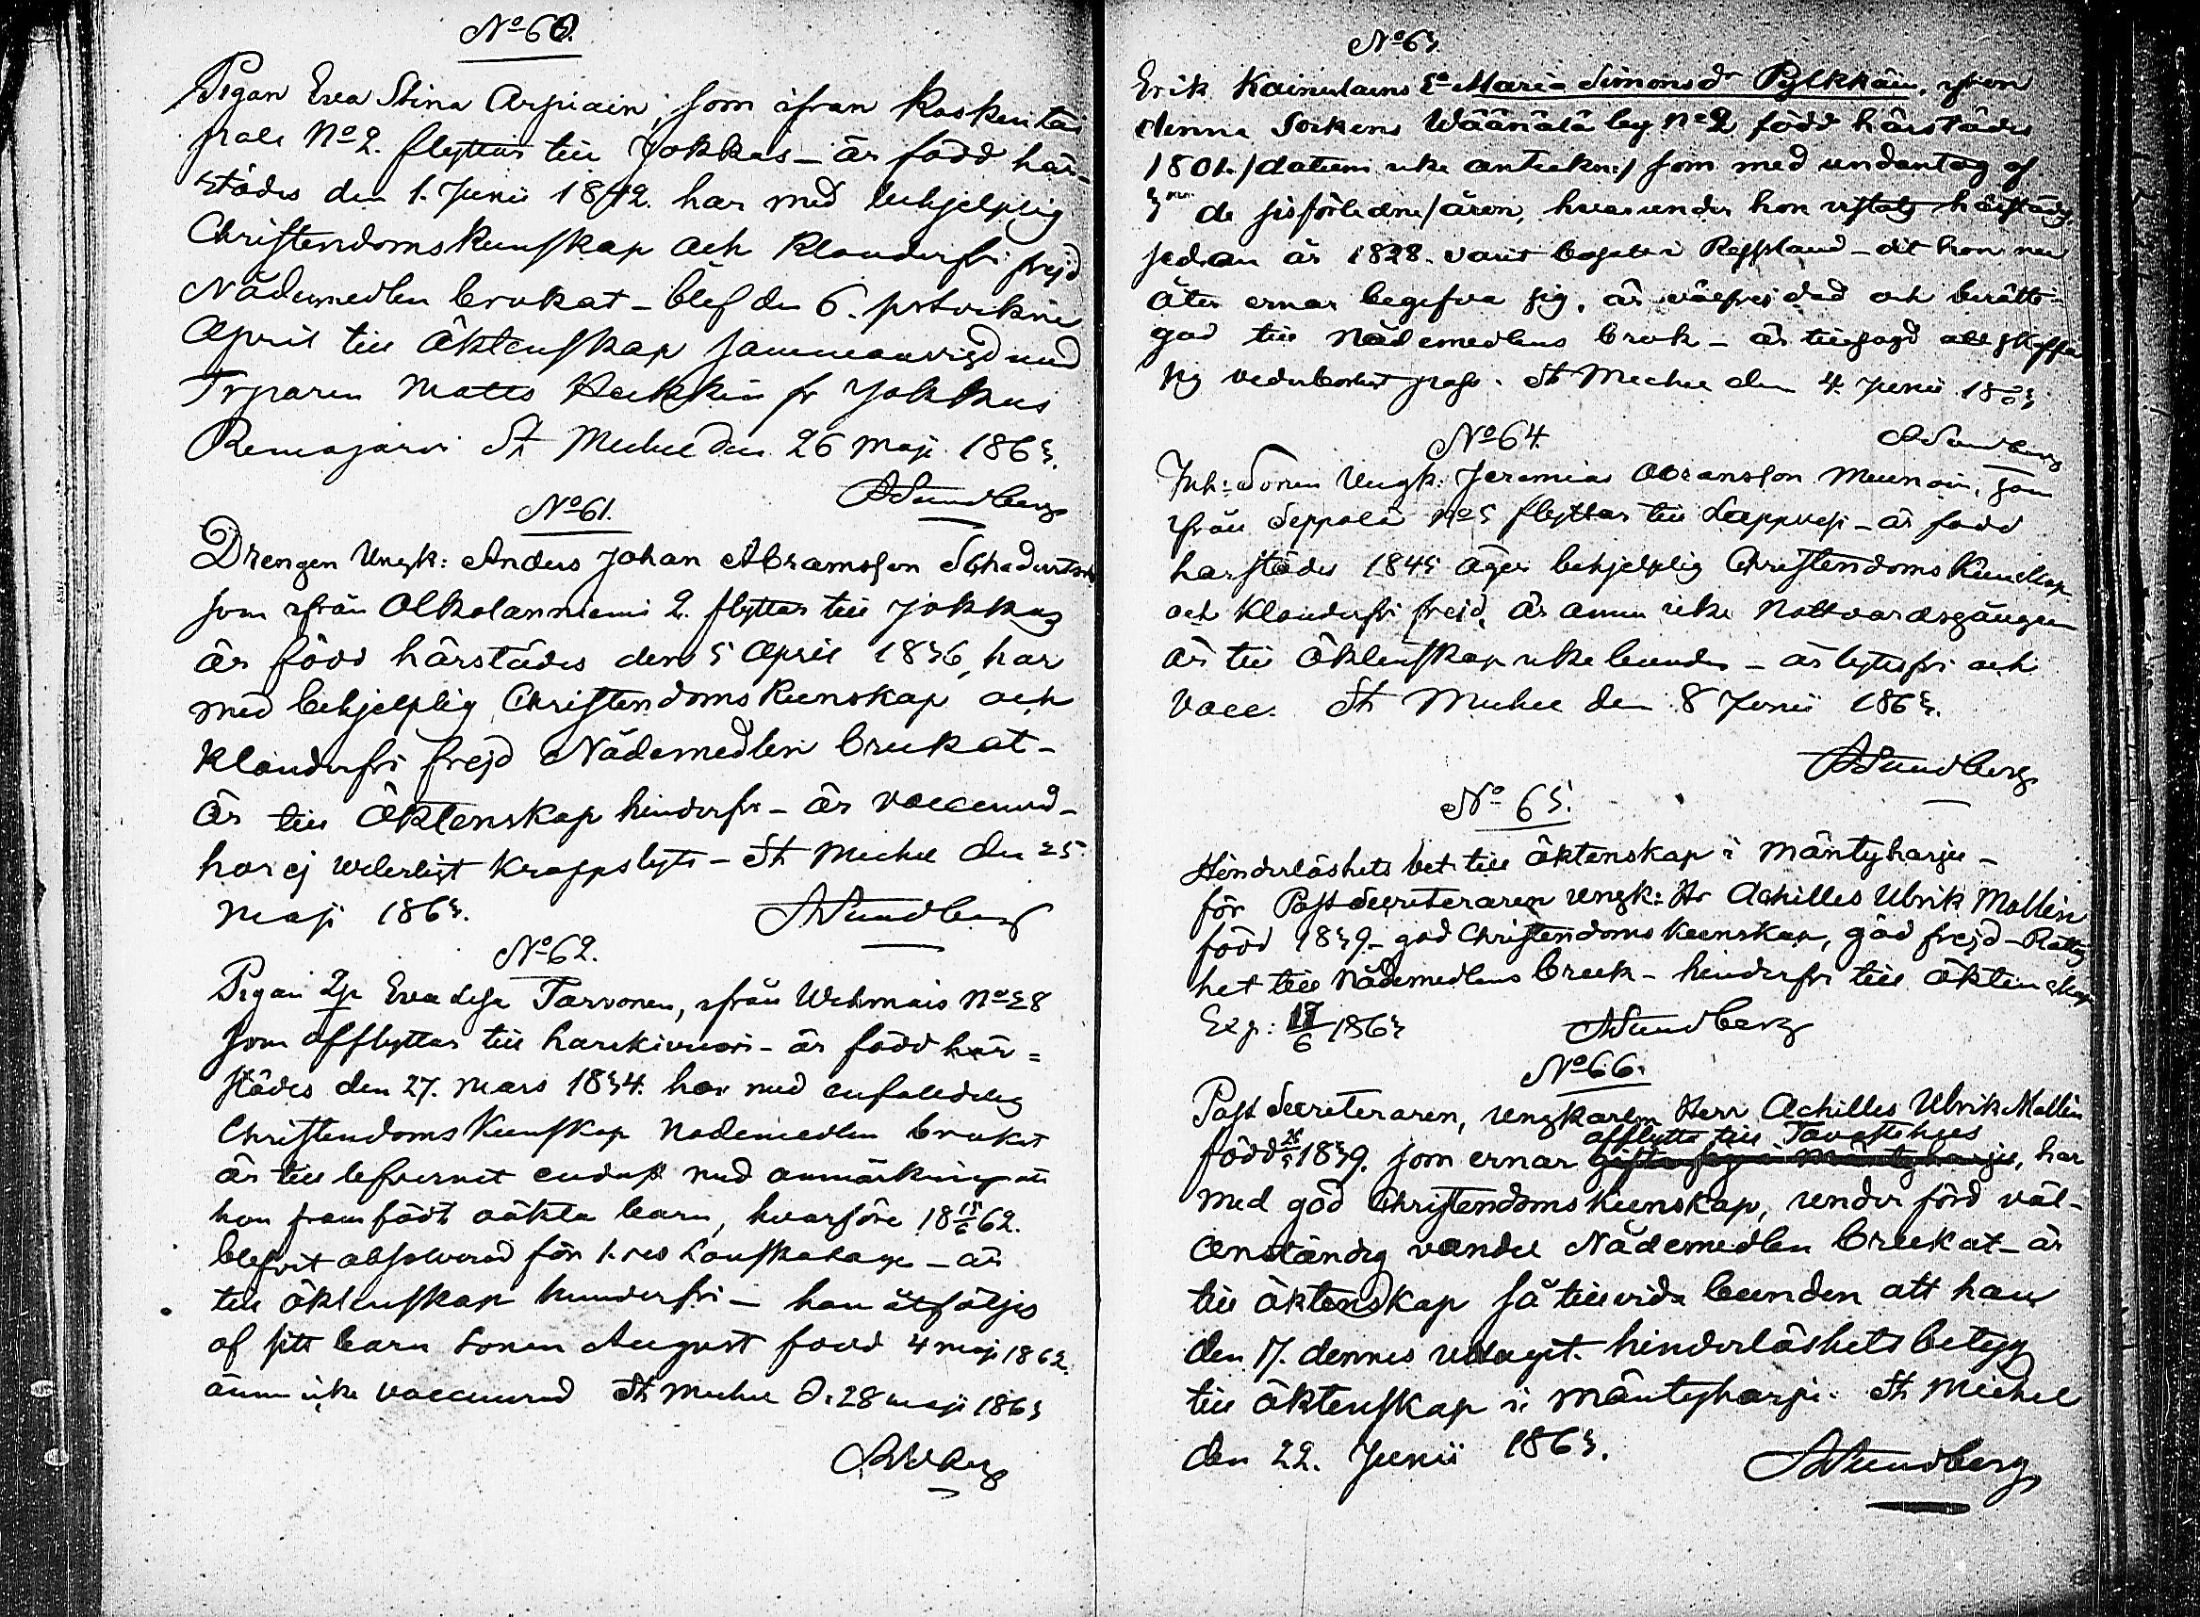 No 60.
Pigan Eva Stina Arpiain, som ifrån Koskentai
pale No 2. flyttar till Jokkas – är född här-
städes den 1. Junii 1842. har med behjelplig
Christendomskunskap och klanderfri frejd
Nådemedlen brukat – blef den 6. sistvikne
April till Äktenskap sammanvigd med
Torparen Matts Heikkin fr Jokkas
Remojärvi St Michel den 26 Maji 1863.
ASundberg
No 61.
Drengen Ungk: Anders Johan Abramsson
som ifrån Olkolanniemi 2. flyttar till Jokkas
är född härstädes den 5 April 1836, har
med behjelplig Christendomskunskap och
klanderfri frejd Nådemedlen brukat –
är till Äktenskap hinderfri – är vaccinerad –
har ej vederligt kroppslyte – St Michel den 25
Maji 1863.
ASundberg
No 62.
Pigan Eva Lisa Tarvonen, ifrån Wehmais No 28
som afflyttar till Haukivuori – är född här=
städes den 27. Mars 1834. har med enfalldelig
Christendomskunskap Nådemedlen brukat
är till lefvernet endast med anmärkning att
hon framfödt oäkta barn, hvarföre 18 15/6 62.
blefvit absolverad för 1. res Lönskaläge – är
till äktenskap hinderfri – hon åtföljes
af sitt barn Sonen August född 4 maji 1862.
ännu icke vaccinerad St Michel d. 28 maji 1863
No 63.
Erik Kainulains Ea Maria Simonsdr Pylkkäin, ifrån
denna Sockens Wäänälä by No 2 född härstädes
1801. /datum icke anteckn:/ som med undantag af
3ne de sisförledne åren, hvarunder hon vistats härstädes,
sedan år 1828. varit bosatt i Ryssland – dit hon nu
åter ernar begifva sig, är välfrejdad och berätti-
gad till Nådemedlens bruk – är tillsagd att skaffa
sig vederbörligt pass. St Michel den 4. Junii 1863
ASundberg
No 64.
Inh: Sonen Ungk: Jeremias Abramsson Meunain, som
ifrån Seppälä No 5 flyttar till Lappvesi – är född
härstädes 1845 äger behjelplig Christendomskunskap
och klanderfri frejd, är ännu icke Nattvardsgången
är till Äktenskap icke bunden – är lytesfri och
vacc. St Michel den 8 Junii 1863.
ASundberg
No 65.
Hinderlöshets bet till äktenskap i Mäntyharju –
för Post Secreteraren Ungk: Hr Achilles Ulrik Mollin
född 1839 – god Christendomskunskap, god frejd – Rättig
het till Nådemedlens bruk – hinderfri till äktenskap
Exp: 17/6 1863
ASundberg
No 66.
Post Secreteraren, ungkarlen Herr Achilles Ulrik Mollin
afflytta till Tavastehus
född 1839. som ernar gifta sig i Mäntyharju, har
med god Christendomskunskap, under förd väl-
anständig vandel Nådemedlen brukat – är
till äktenskap så tillvida bunden att han
den 17. dennes uttagit hinderlöshets betyg
till äktenskap i Mäntyharju. St Michel
den 22. Junii 1863.
ASundberg